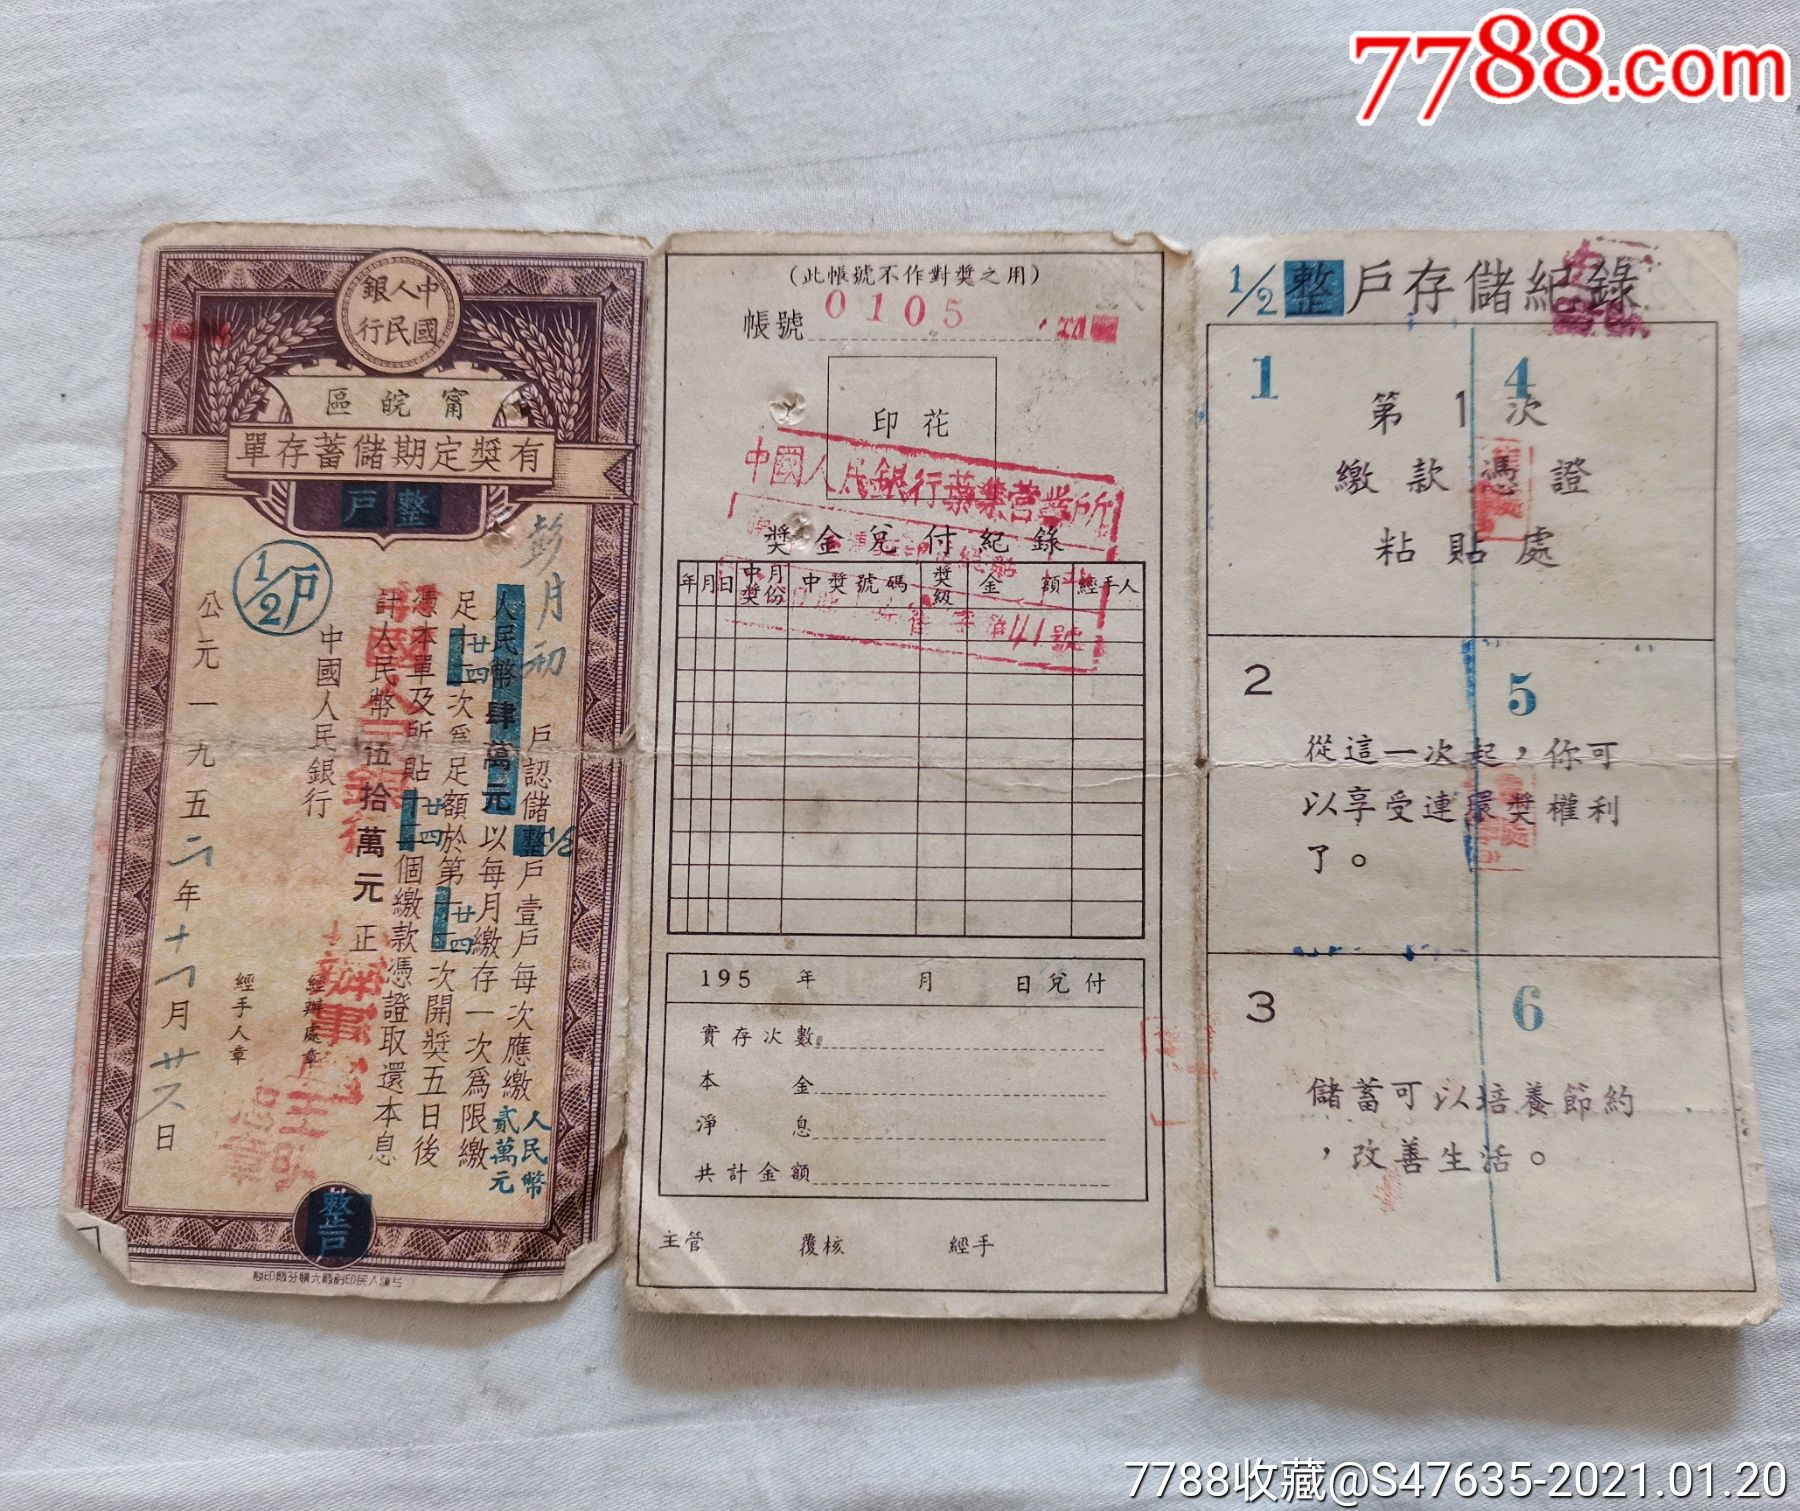 7788.com
中國人民銀行
甯皖區
有獎定期儲蓄存單
整戶
1/2戶
彭月初
戶認儲整1/2戶壹戶每次應繳人民幣貳萬元
人民幣肆萬元以每月繳存一次為限繳
足十二廿四次為足額於第十二廿四次開獎五日後
憑本單及所貼十二廿四個繳款憑證取還本息
計人民幣伍拾萬元正
中國人民銀行
經辦處章
經手人章
公元一九五二年十一月廿六日
整戶
(此帳號不作對獎之用)
帳號 0105
印花
中國人民銀行葉集營業所
41號
獎金兌付紀錄
年 月 日 中獎月份 中獎號碼 獎級 金額 經手人
195 年 月 日兌付
實存次數
本金
淨息
共計金額
主管 覆核 經手
1/2整戶存儲紀錄
1 4
第1次
繳款憑證
粘貼處
2 5
從這一次起，你可
以享受連環獎權利
了。
3 6
儲蓄可以培養節約
，改善生活。
7788收藏@S47635-2021.01.20